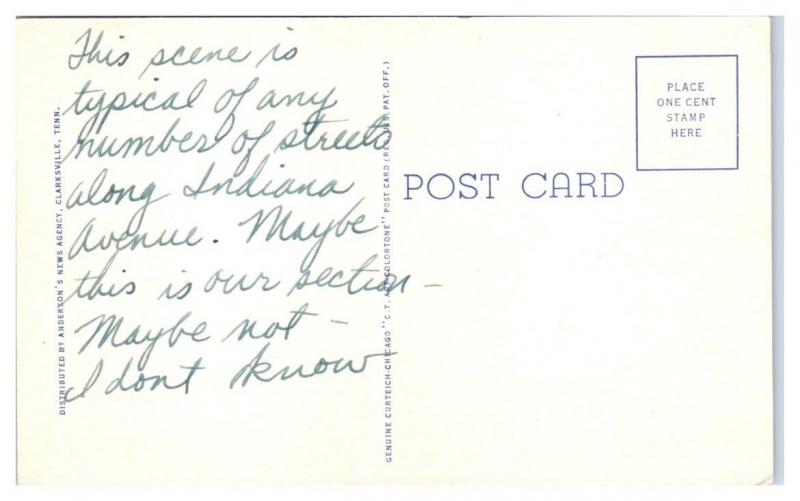 This scene is
typical of any
number of streets
along Indiana
Avenue. Maybe
this is our section -
Maybe not -
I dont know
DISTRIBUTED BY ANDERSON'S NEWS AGENCY, CLARKSVILLE, TENN.
GENUINE CURTEICH-CHICAGO "C.T. ART-COLORTONE" POST CARD (REG. U.S. PAT. OFF.)
POST CARD
PLACE
ONE CENT
STAMP
HERE